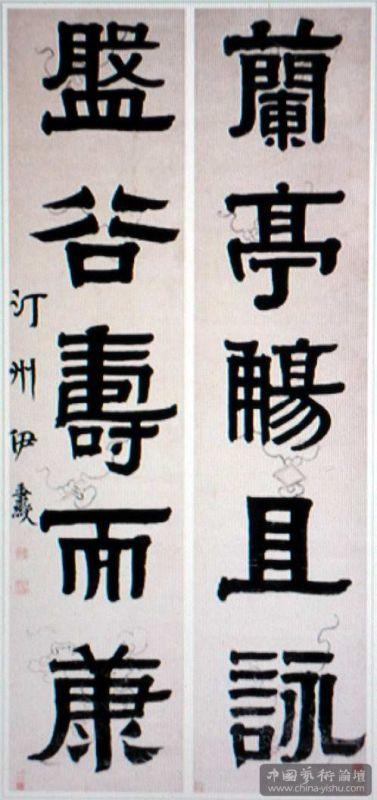 蘭亭觴且詠
盤谷壽而康
汀州伊秉綬
中國藝術論壇
www.china-yishu.com